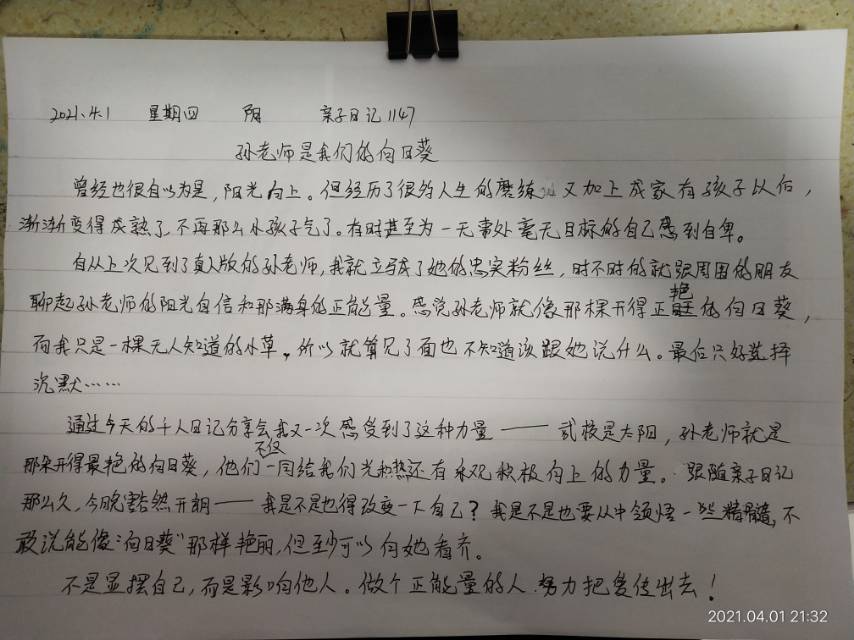 2021.4.1 星期四 阴 亲子日记1147
孙老师是我们的向日葵
曾经也很自以为是,阳光向上。但经历了很多人生的磨练 又加上成家有孩子以后,
渐渐变得成熟了,不再那么小孩子气了。有时甚至为一无事处毫无目标的自己感到自卑。
自从上次见到了真人版的孙老师,我就立马成了她的忠实粉丝,时不时的就跟周围的朋友
聊起孙老师的阳光自信和那满身的正能量。感觉孙老师就像那棵开得正艳的向日葵,
而我只是一棵无人知道的小草。所以就算见了面也不知道该跟她说什么。最后只好选择
沉默……
通过今天的千人日记分享会我又一次感受到了这种力量——贰校是太阳,孙老师就是
那朵开得最艳的向日葵,他们一同给我们不仅光和热还有乐观积极向上的力量。跟随亲子日记
那么久,今晚豁然开朗——我是不是也得改变一下自己?我是不是也要从中领悟一些精髓,不
敢说能像“向日葵”那样艳丽,但至少可以向她看齐。
不是显摆自己,而是影响他人。做个正能量的人.努力把爱传出去!
2021.04.01 21:32